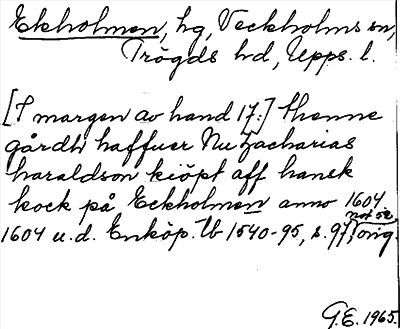 Ekholmen, hg, Veckholms sn,
Trögds hd, Upps. l.
[I margen av hand 17:] thenne
gårdh haffuer Nu Zacharias
haraldson kiöpt aff hansk
kock på Eckholmen anno 1604
not se,
1604 u.d. Enköp. Tb 1540-95, s. 97, orig.
G.E. 1965.